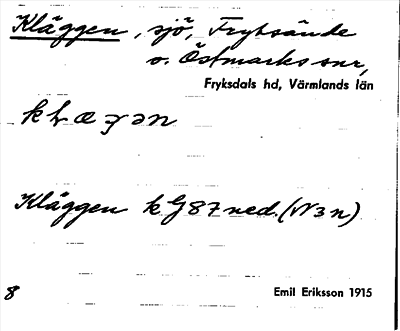 Kläggen, sjö, Fryksände
o. Östmarks snr,
Fryksdals hd, Värmlands län
Kläggen k G 87 ned. (N 3 n)
8
Emil Eriksson 1915